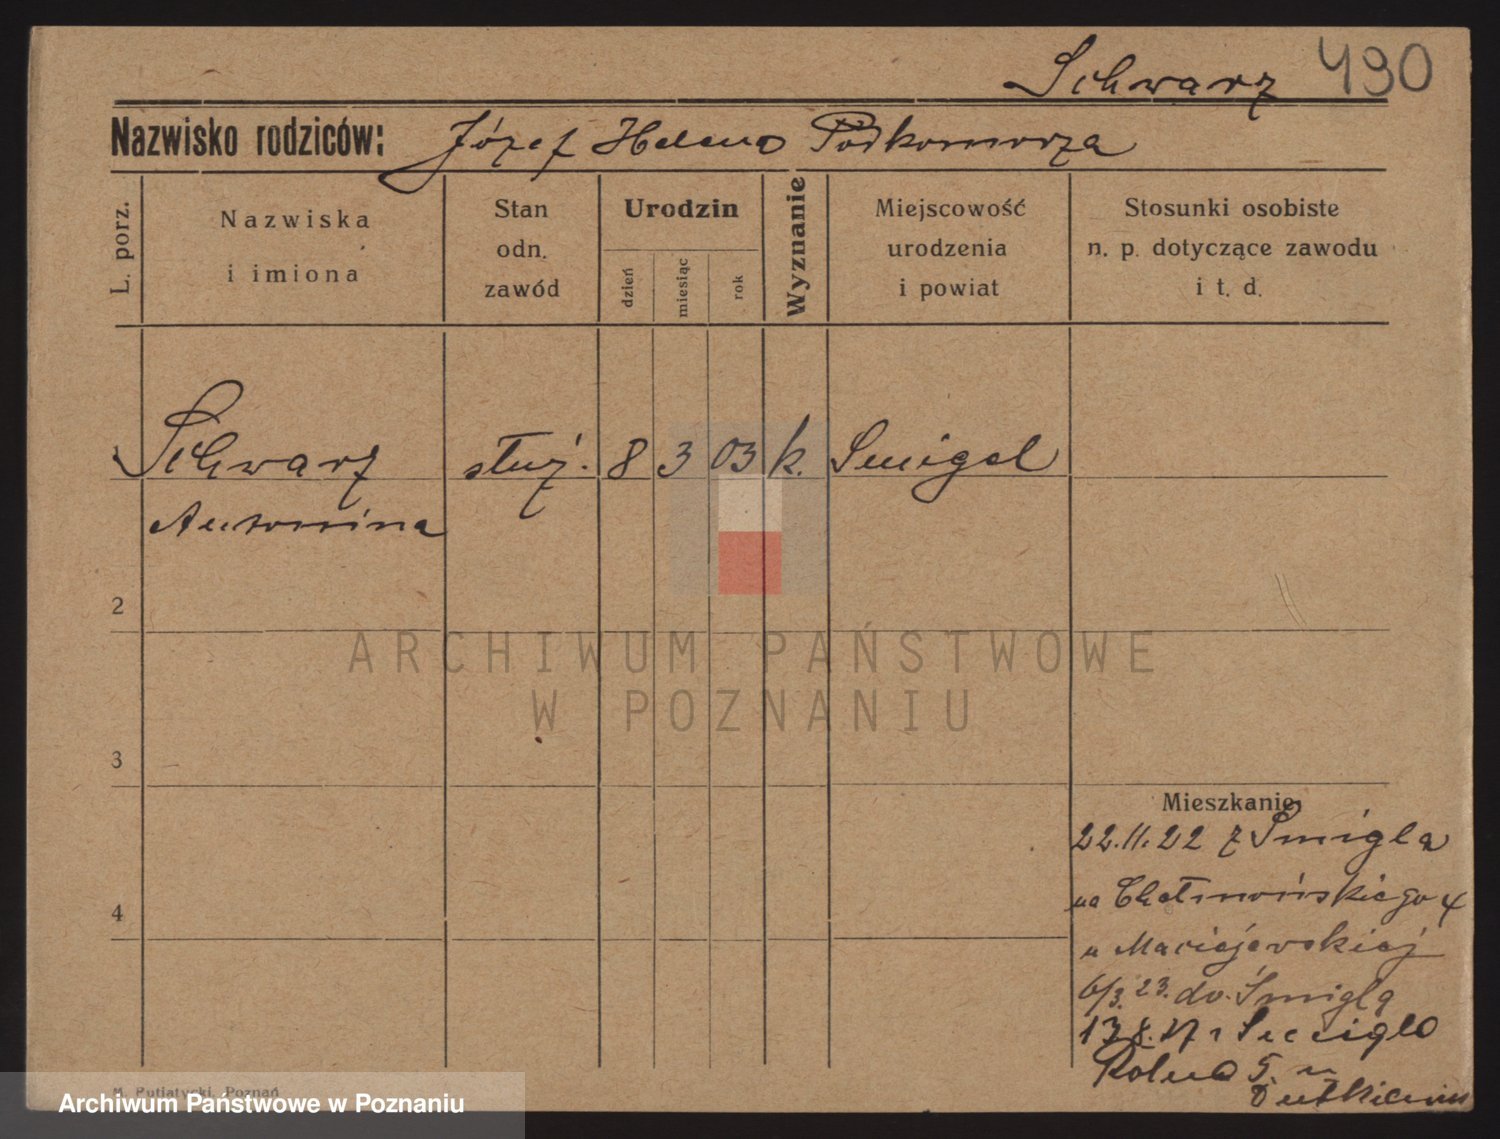 Schwarz 490
Nazwisko rodziców: Józef Helena Podkomorza
L. porz.
Nazwiska
i imiona
Stan
odn.
zawód
Urodzin
dzień
miesiąc
rok
Wyznanie
Miejscowość
urodzenia
i powiat
Stosunki osobiste
n. p. dotyczące zawodu
i t. d.
1 Schwarz służ. 8 3 03 k. Smigel
Antonina
2
ARCHIWUM PAŃSTWOWE
W POZNANIU
3
Mieszkanie
22.11.22 z Smigla
na Chełmońskiego 4
u Maciejewskiej
6/3. 23. do Śmigla
13.8.27 z Smigla
Rolna 5. u
4
M. Putiatycki, Poznań
Archiwum Państwowe w Poznaniu